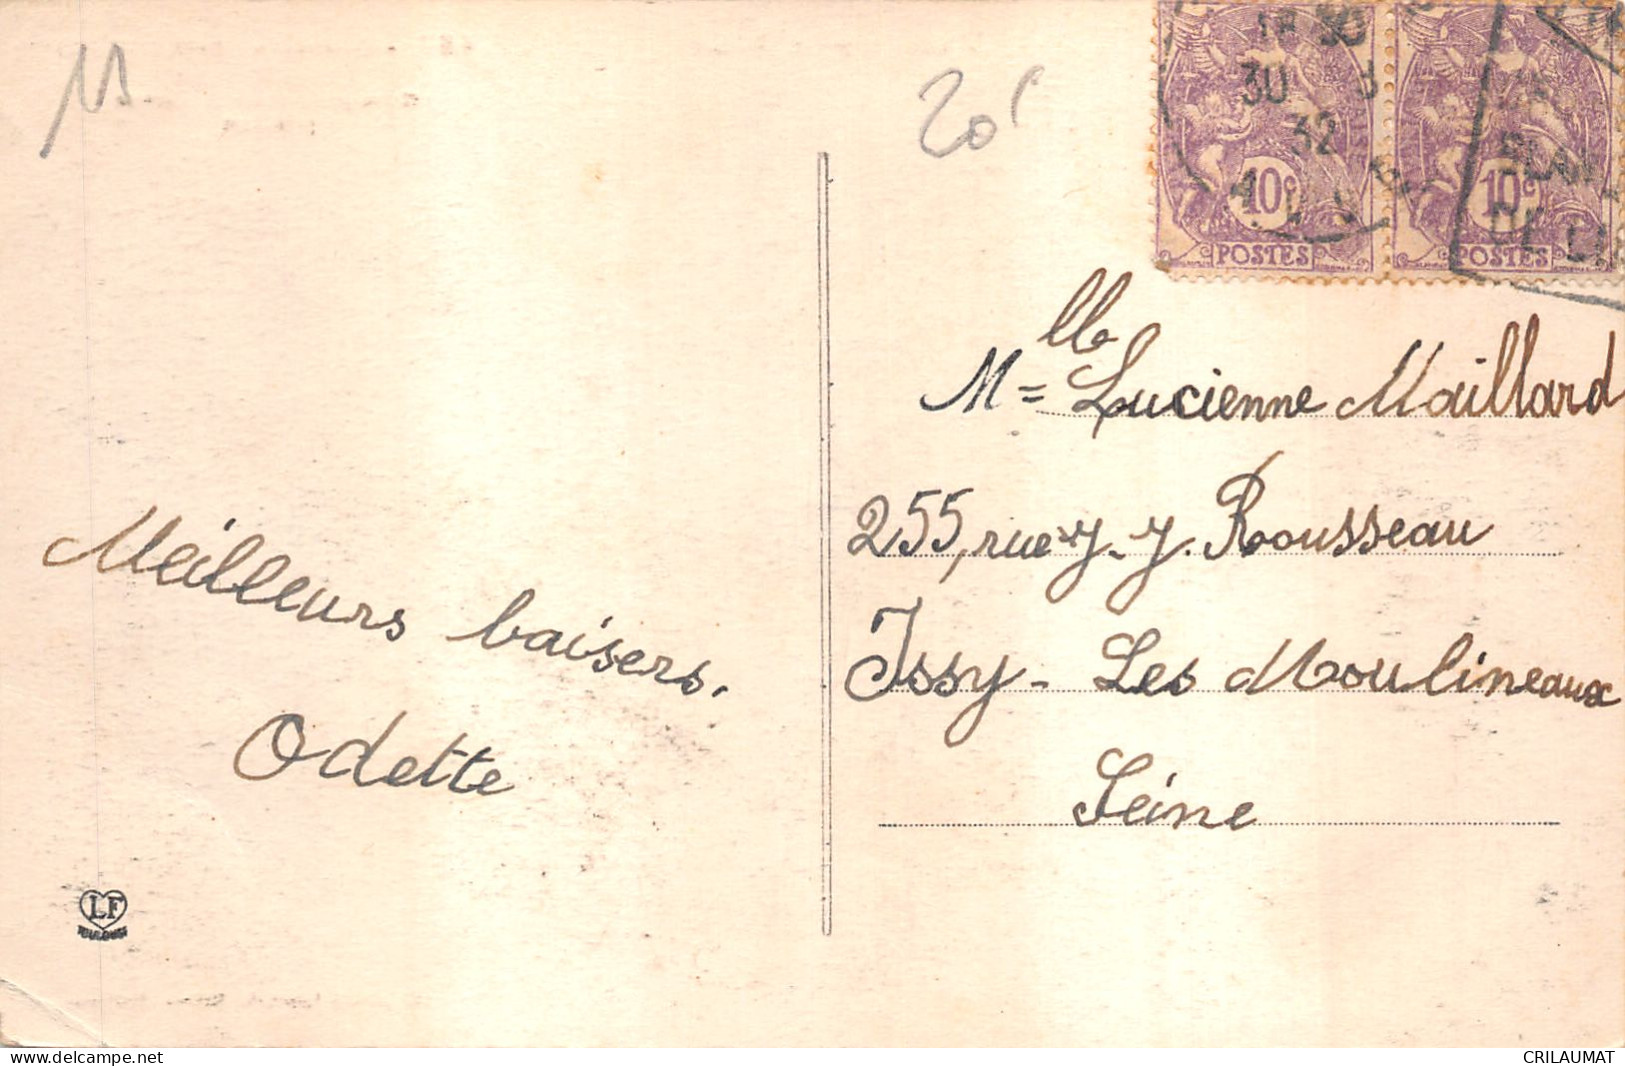 11
20f
30
32
10c
POSTES
10c
POSTES
Mlle Lucienne Maillard
255, rue J. J. Rousseau
Issy - Les Moulineaux
Seine
Meilleurs baisers.
Odette
LF
TOULOUSE
delcampe.net
CRILAUMAT